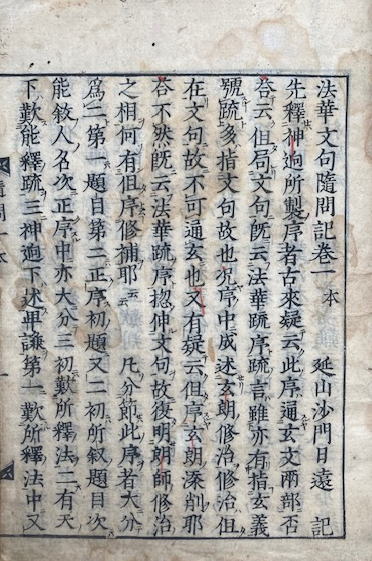 法華文句隨問記卷一 本 延山沙門日遠 記
先釋神逈所製序者古來疑云此序通玄文兩部否
答云但局文句既云法華疏序疏言雖亦有指玄義
號疏多指文句故也況序中成述玄朗修治修治但
在文句故不可通玄也又有疑云但序玄朗深削耶
答不然既云法華疏序揔伸文句故復明朗師修治
之相何有但序修補耶云云 凡分節此序者大分
爲二第一題自第二正序初題又二初所叙題目次
能敘人名次正序中亦大分三初歎所釋法二有天
下歎能釋疏三神逈下述畢讓第一歎所釋法中又